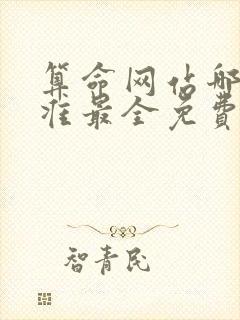 算命网站哪
准最全免費
智青民